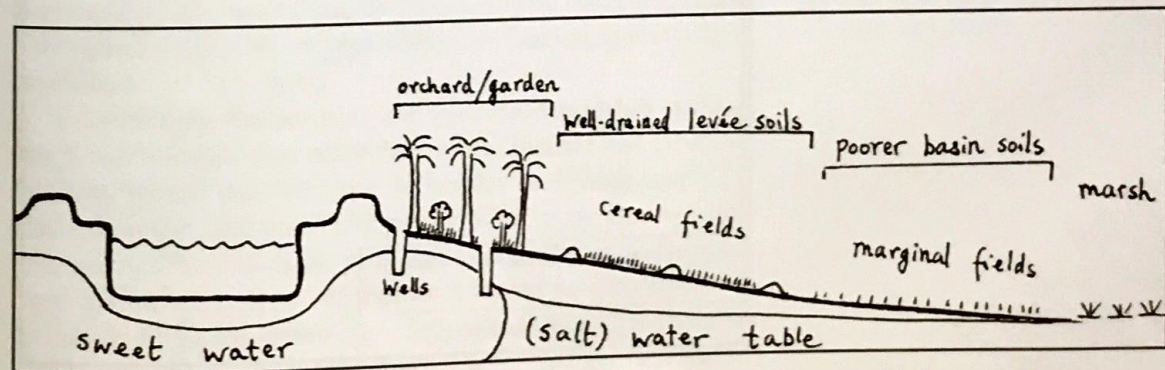 orchard/garden
well-drained levée soils
poorer basin soils
marsh
cereal fields
marginal fields
Wells
sweet water
(salt) water table